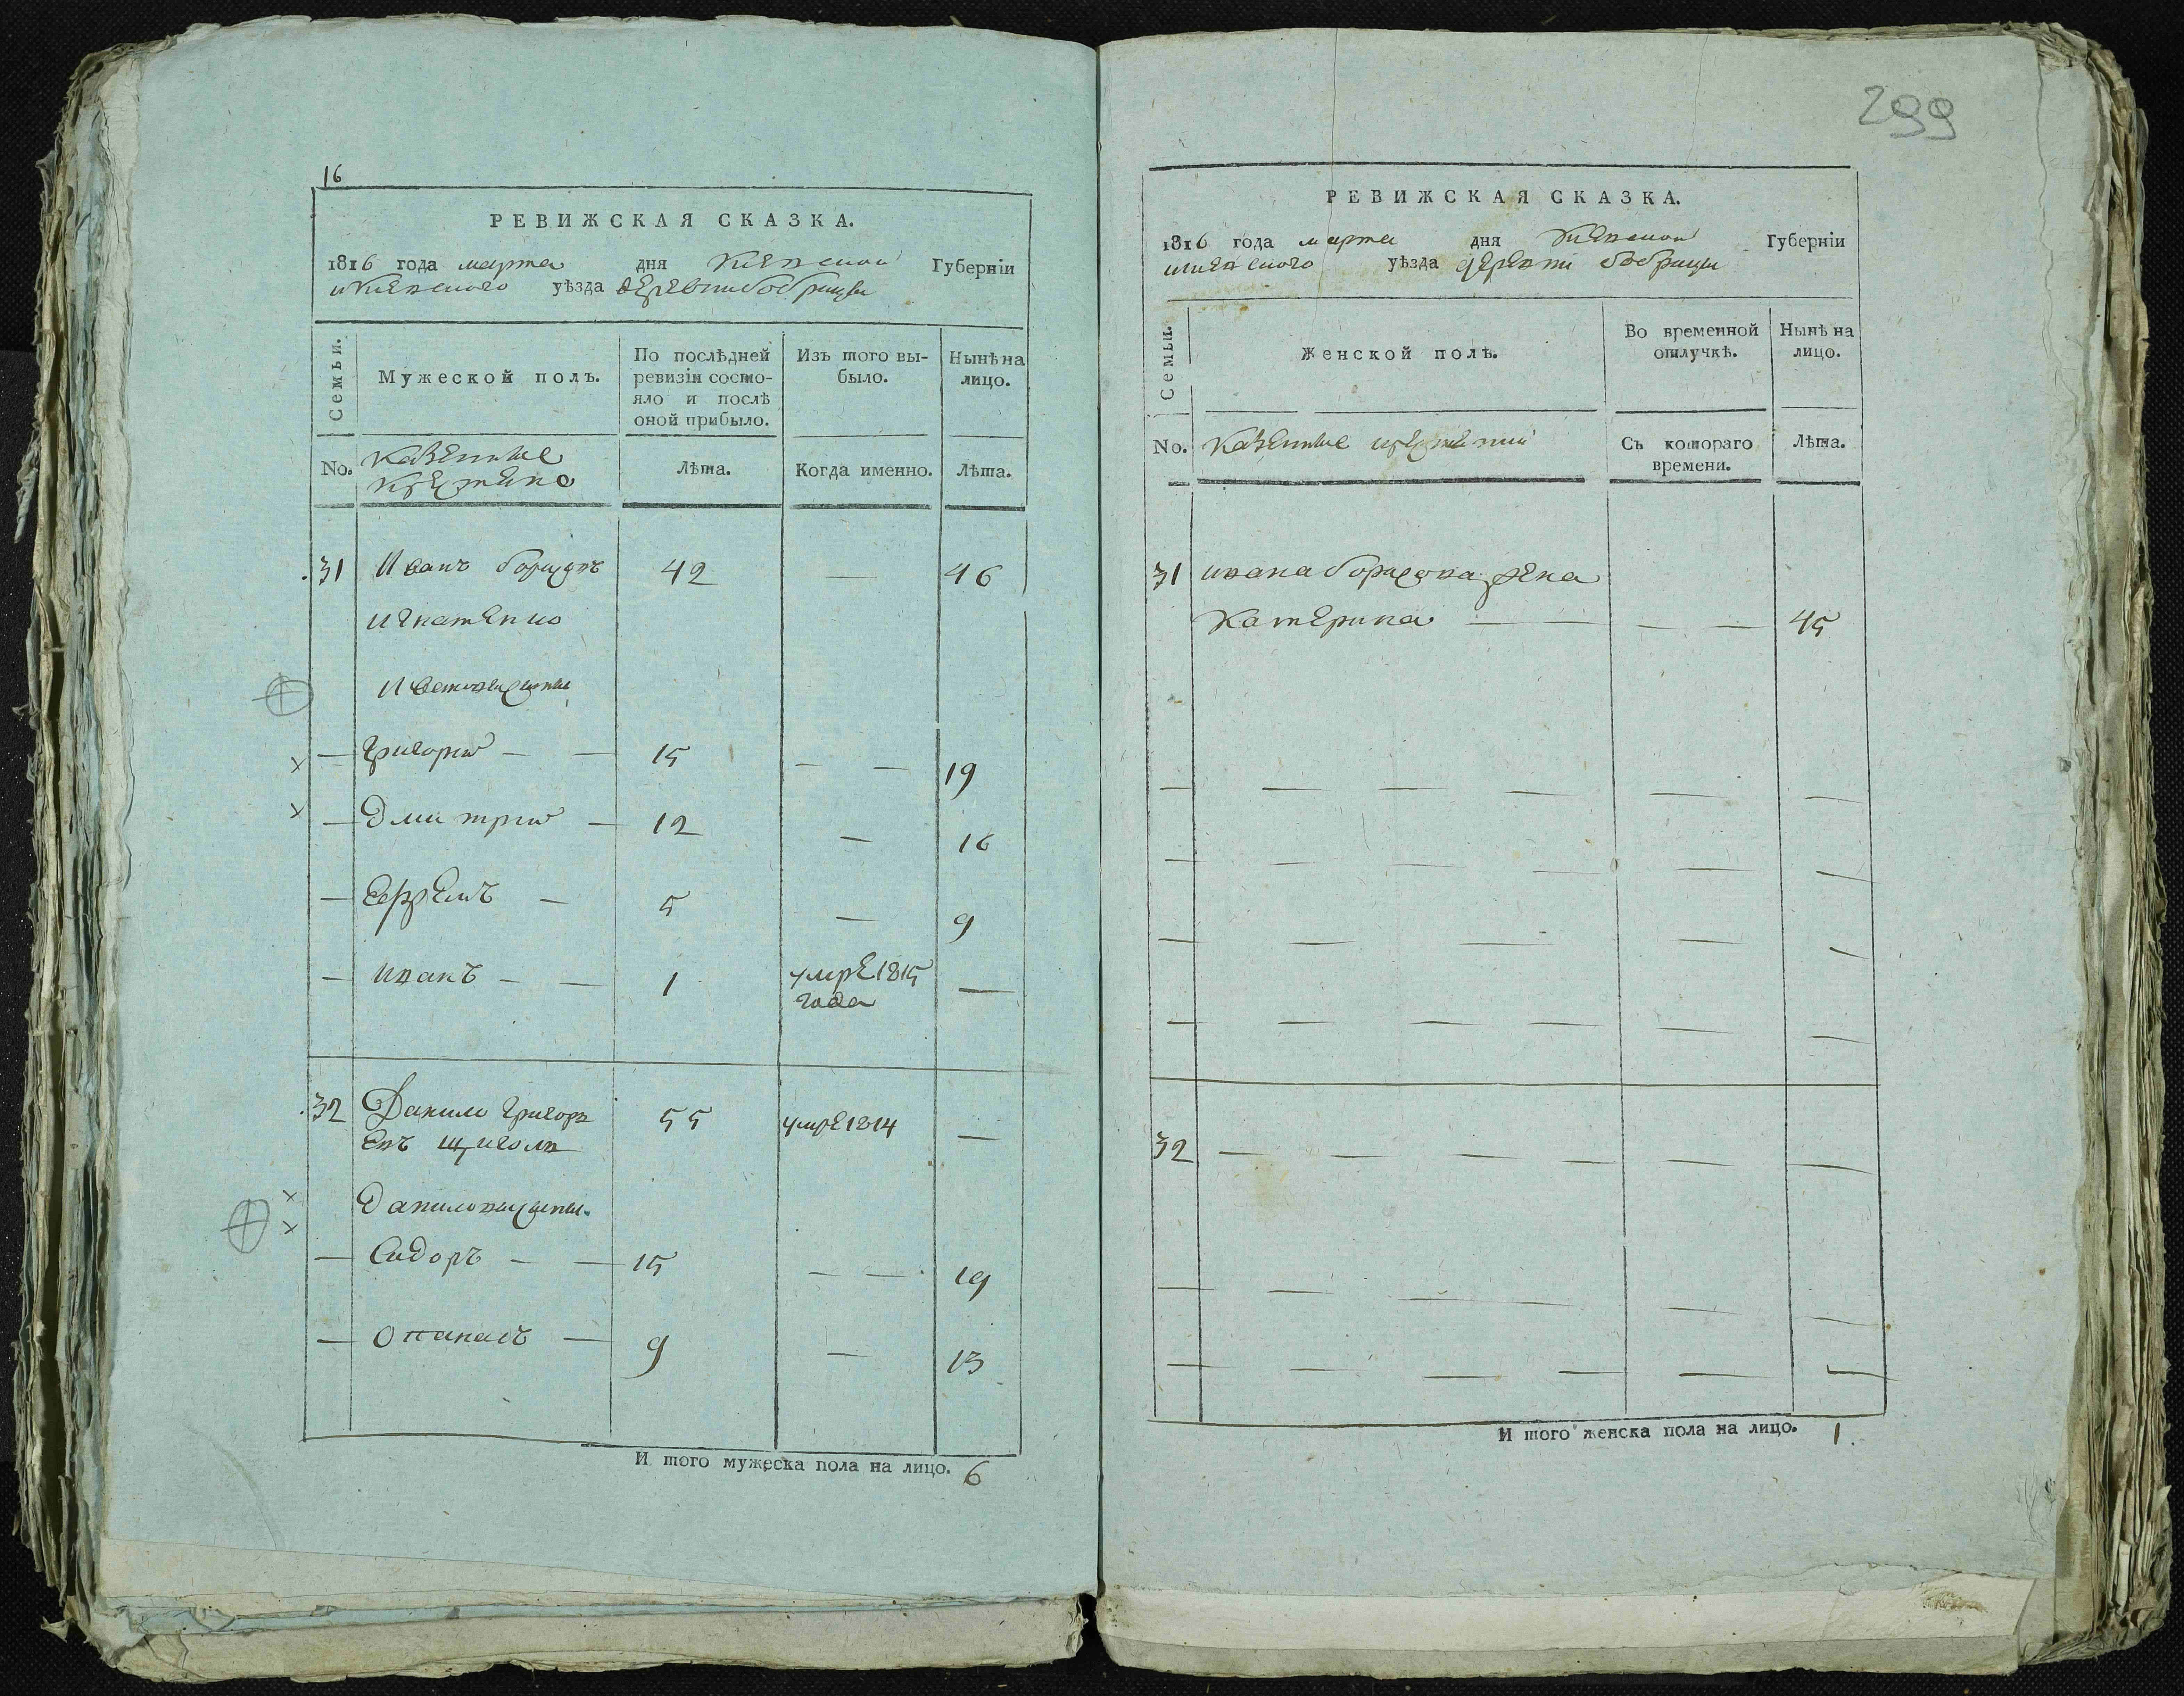 16
РЕВИЖСКАЯ СКАЗКА.
1816 года марта дня Киевской Губерніи
и Киевского уѣзда деревни бобрицы
Семьи.
Мужеской полъ.
По послѣдней ревизіи состо-
яло и послѣ
оной прибыло.
Изъ того вы-
было.
Нынѣ на
лицо.
No.
Казенные
Крестяне
Лѣта.
Когда именно.
Лѣта.
31 Иванъ борисовъ 42 — 46
игнатенко
Ивана сыны
— Григорий — — 15 — — 19
— Дмитрий — 12 — 16
— Ефремъ — 5 — 9
— иванъ — — 1 умре 1815 —
года
32 Данило Григорь 55 умре 1814 —
евъ щиголь
Данило
— Сидоръ — — 15 — — 19
— Опанасъ — 9 — 13
И того мужеска пола на лицо. 6
299
РЕВИЖСКАЯ СКАЗКА.
1816 года марта дня Киевской Губерніи
и киевского уѣзда деревни бобрицы
Семьи.
Женской полъ.
Во временной
отлучкѣ.
Нынѣ на
лицо.
No.
Казенные
Съ котораго
времени.
Лѣта.
31 ивана борисова жена
Катерина — — — — 45
32 — — — — — —
И того женска пола на лицо. 1.